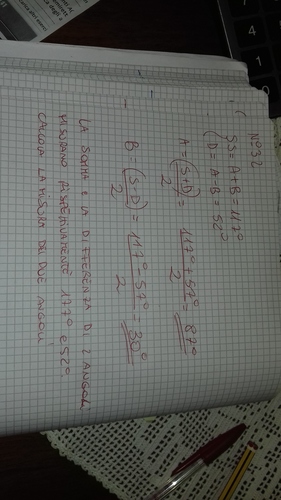 N°32
S = A + B = 117°
D = A - B = 52°
A = (S+D)/2 = 117° + 57°/2 = 87°
B = (S-D)/2 = 117° - 57°/2 = 30°
LA SOMMA E LA DIFFERENZA DI 2 ANGOLI
MISURANO RISPETTIVAMENTE 117° e 52°
CALCOLA LA MISURA DEI DUE ANGOLI